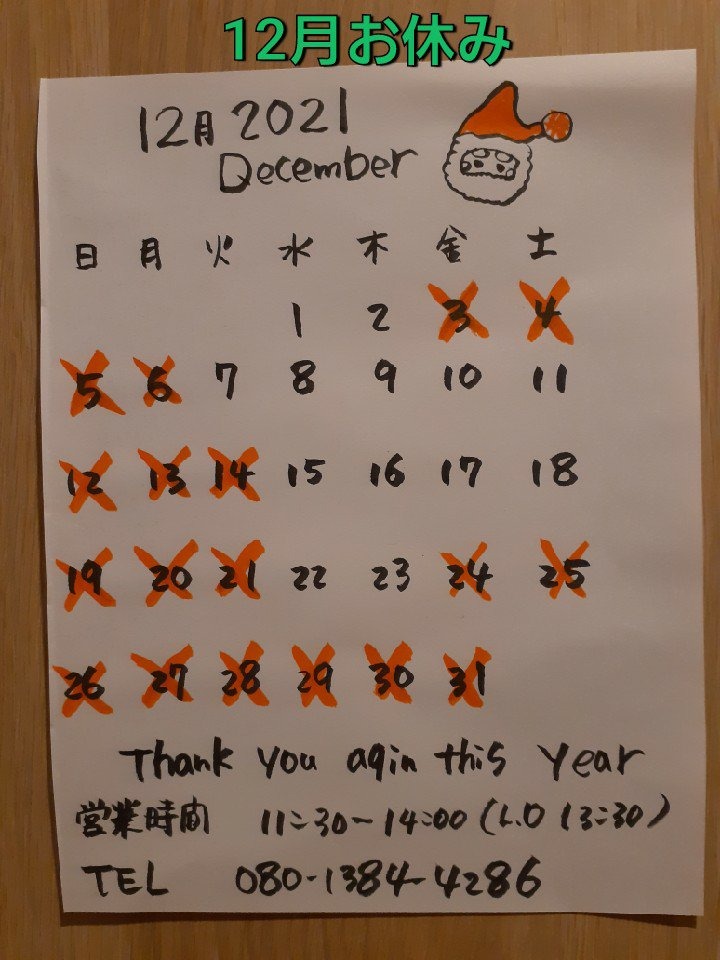 12月お休み
12月 2021
December
日 月 火 水 木 金 土
1 2 3 4
5 6 7 8 9 10 11
12 13 14 15 16 17 18
19 20 21 22 23 24 25
26 27 28 29 30 31
Thank you agin this year
営業時間 11:30~14:00 (L.O 13:30)
TEL 080-1384-4286